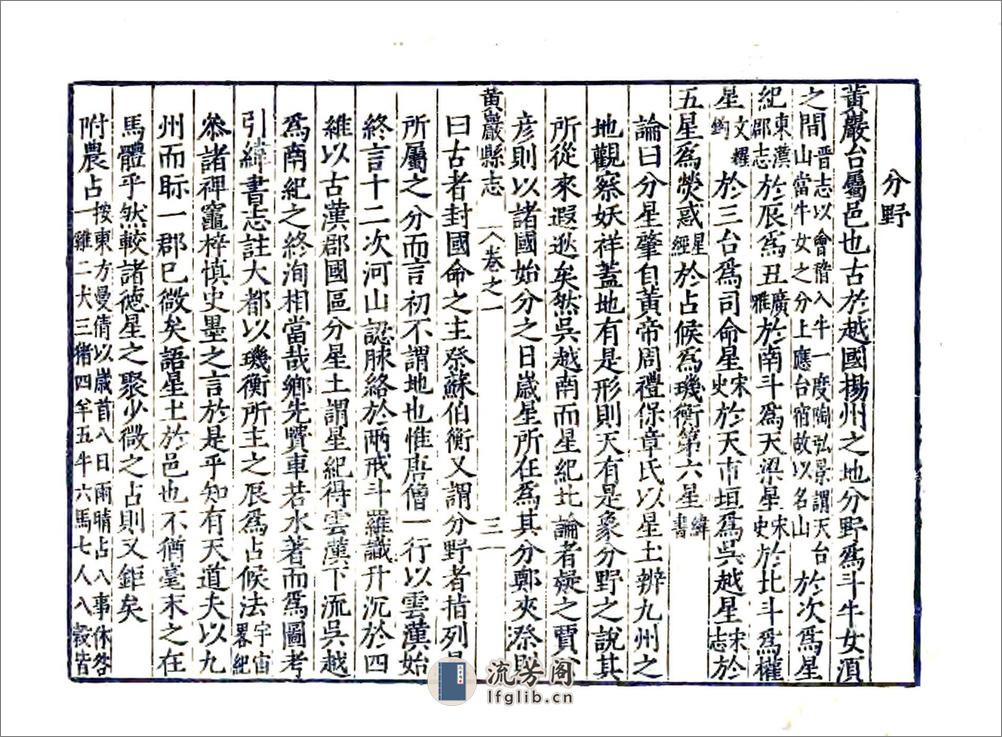 分野
黃巖台屬邑也古於越國楊州之地分野爲斗牛女湏
之間晉志以會稽入牛一度陶弘景謂天台山當牛女之分上應台宿故以名山於次爲星
紀東漢郡志於辰爲丑廣雅於南斗爲天梁星宋史於北斗爲權
星文耀鈎於三台爲司命星宋史於天市垣爲吳越星宋志於
五星爲熒惑星經於占候爲璣衡第六星緯書
論曰分星肇自黃帝周禮保章氏以星土辨九州之
地觀察妖祥蓋地有是形則天有是象分野之說其
所從來遐逖矣然吳越南而星紀北論者疑之賈公
彦則以諸國始分之日歲星所在爲其分鄭夾漈則
黃巖縣志 卷之一 三
曰古者封國命之主祭蘇伯衡又謂分野者指列星
所屬之分而言初不謂地也惟唐僧一行以雲漢始
終言十二次河山認脉絡於兩戒斗羅識升沉於四
維以古漢郡國區分星土謂星紀得雲漢下流吳越
爲南紀之終洵相當哉鄉先覺車若水著而爲圖考
引緯書志註大都以璣衡所主之辰爲占候法宇宙畧紀
叅諸禆竈梓慎史墨之言於是乎知有天道夫以九
州而眎一郡已微矣語星土於邑也不猶毫末之在
馬體乎然較諸德星之聚少微之占則又鉅矣
附農占按東方曼倩以歲首八日雨晴占八事休咎一雞二犬三猪四羊五牛六馬七人八穀皆
流芳阁
lfglib.cn